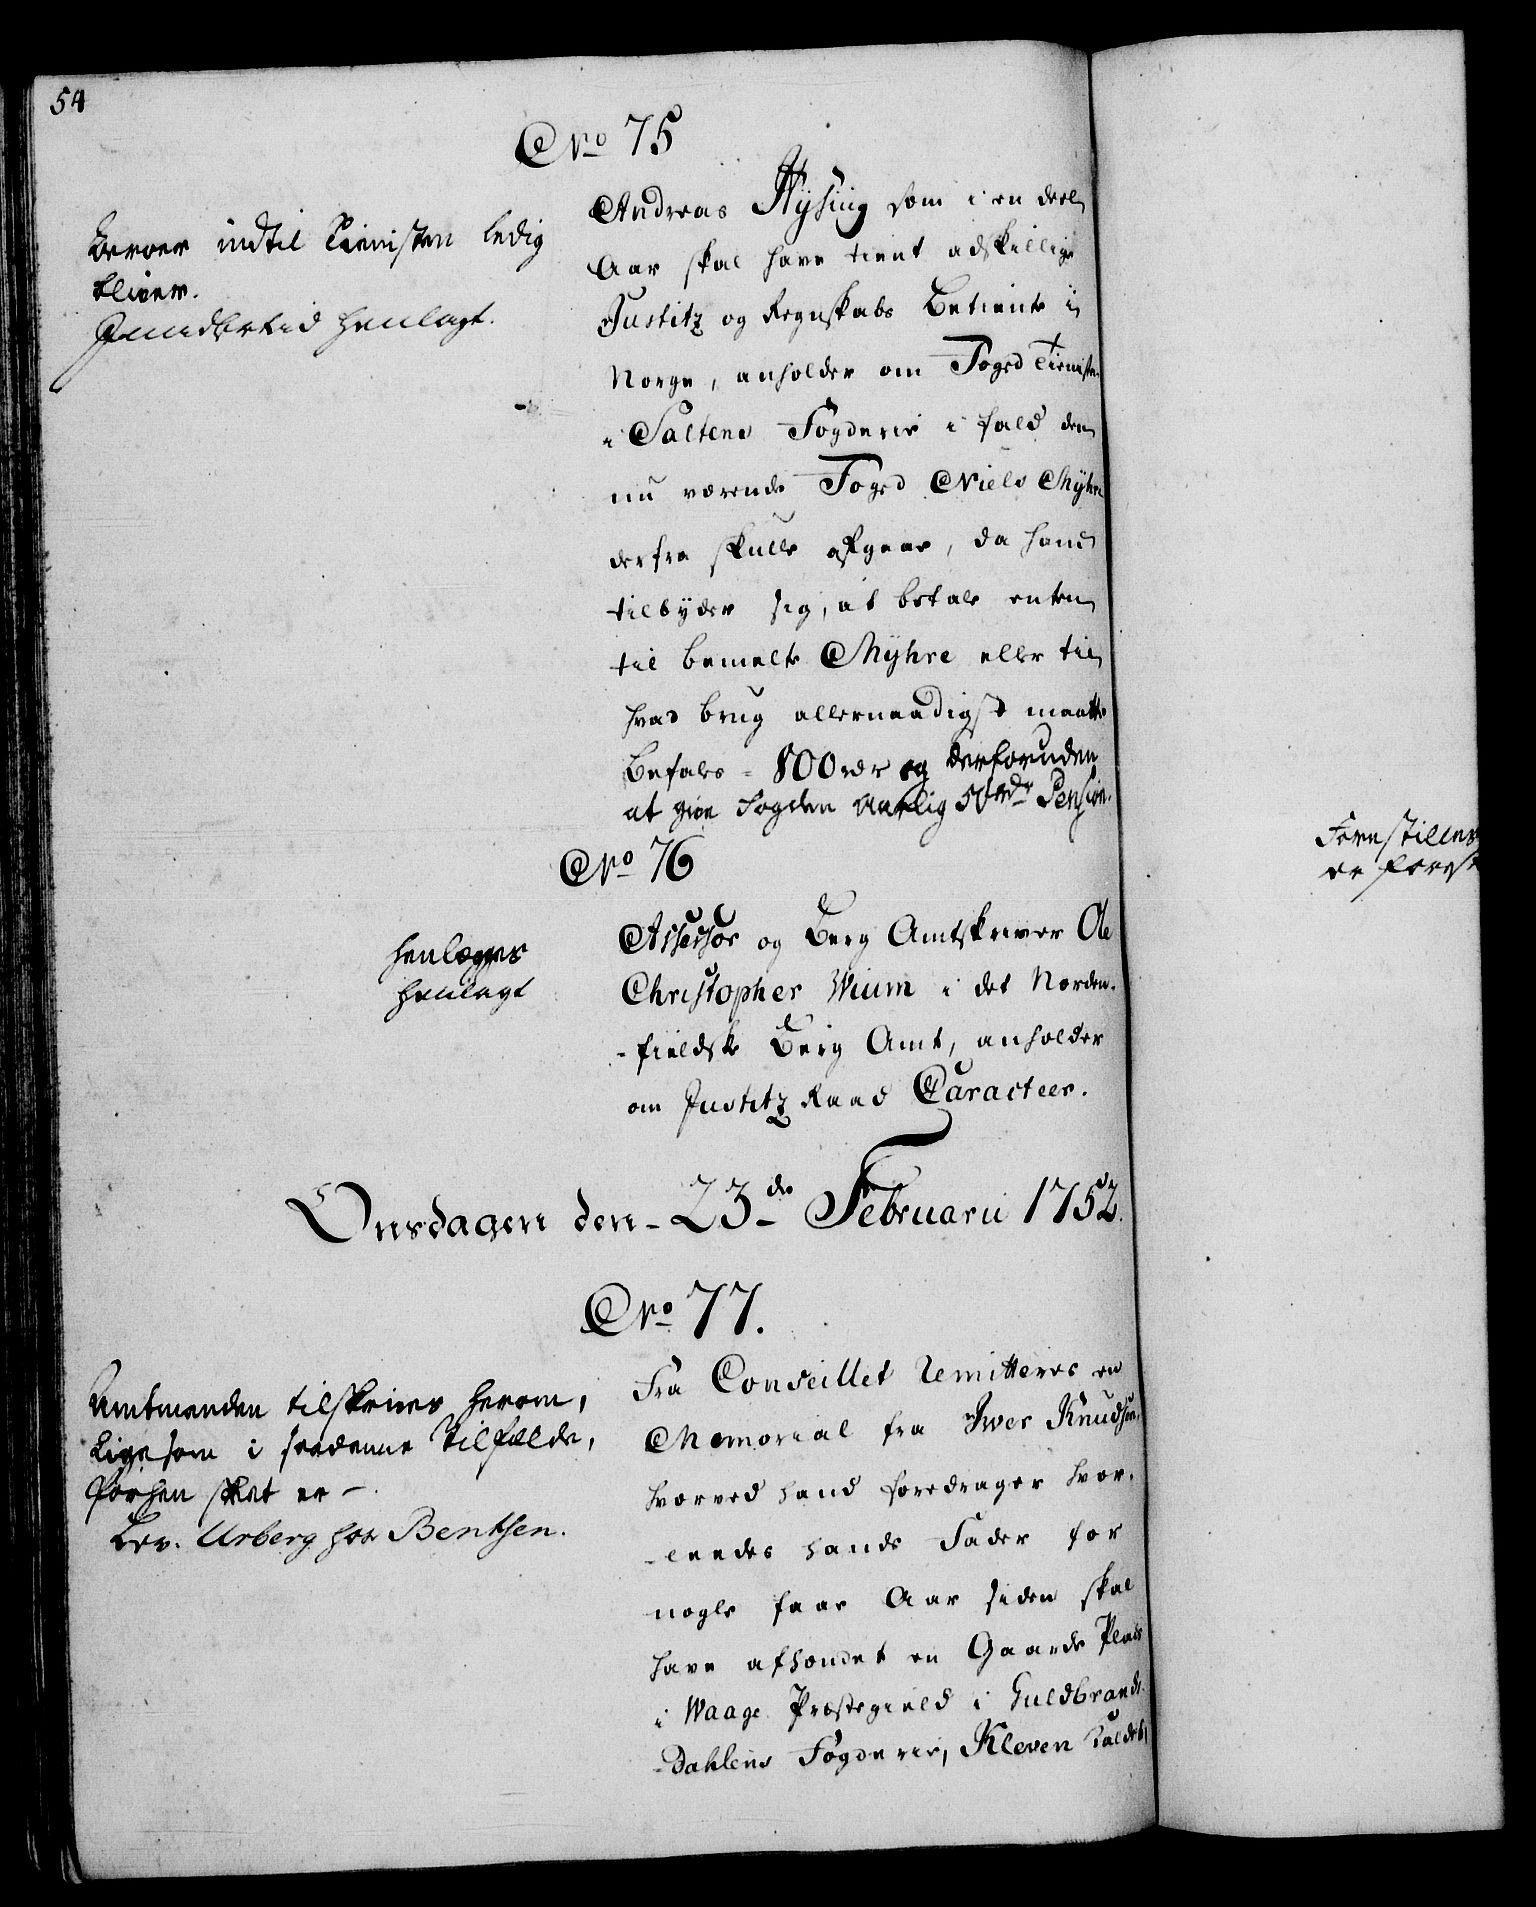 54
No 75
Beroer indtil Tienisten ledig
bliver.
Imidlertid henlagt.
Andreas Hysing som i en deel
Aar skal have tient adskillige
Justitz og Regnskabs Betiente i
Norge, anholder om Foged Tieniste
i Saltens Fogderie i fald den
nu værende Foged Niels Myhre
derfra skulle afgaae, da hand
tilbyder sig, at betale enten
til bemelte Myhre eller til
hvad brug allernaadigst maatte
befales - 800 rdr og derforuden
at give Fogden aarlig 50 rdr Pension.
No 76
henlægges
henlagt
Assessor og Berg Amtskriver Ole
Christopher Wium i det Norden-
-fieldske Berg Amt, anholder
om Justitz Raad Caracteer.
Onsdagen den - 23de Februarii 1752.
No 77.
Amtmanden tilskrives herom,
ligesom i saadanne Tilfælde,
forhen skeet er -
Lev. Urberg hos Bentsen.
Fra Conseillet remitteres en
Memorial fra Iver Knudsen,
hvorved hand foredrager hvor-
-leedes hands Fader for
nogle faae Aar siden skal
have afhændet en Gaarde Plads
i Waage Præstegield i Guldbrands-
-Dahlens Fogderie, Kleven kaldet,
Forestilles
er forest